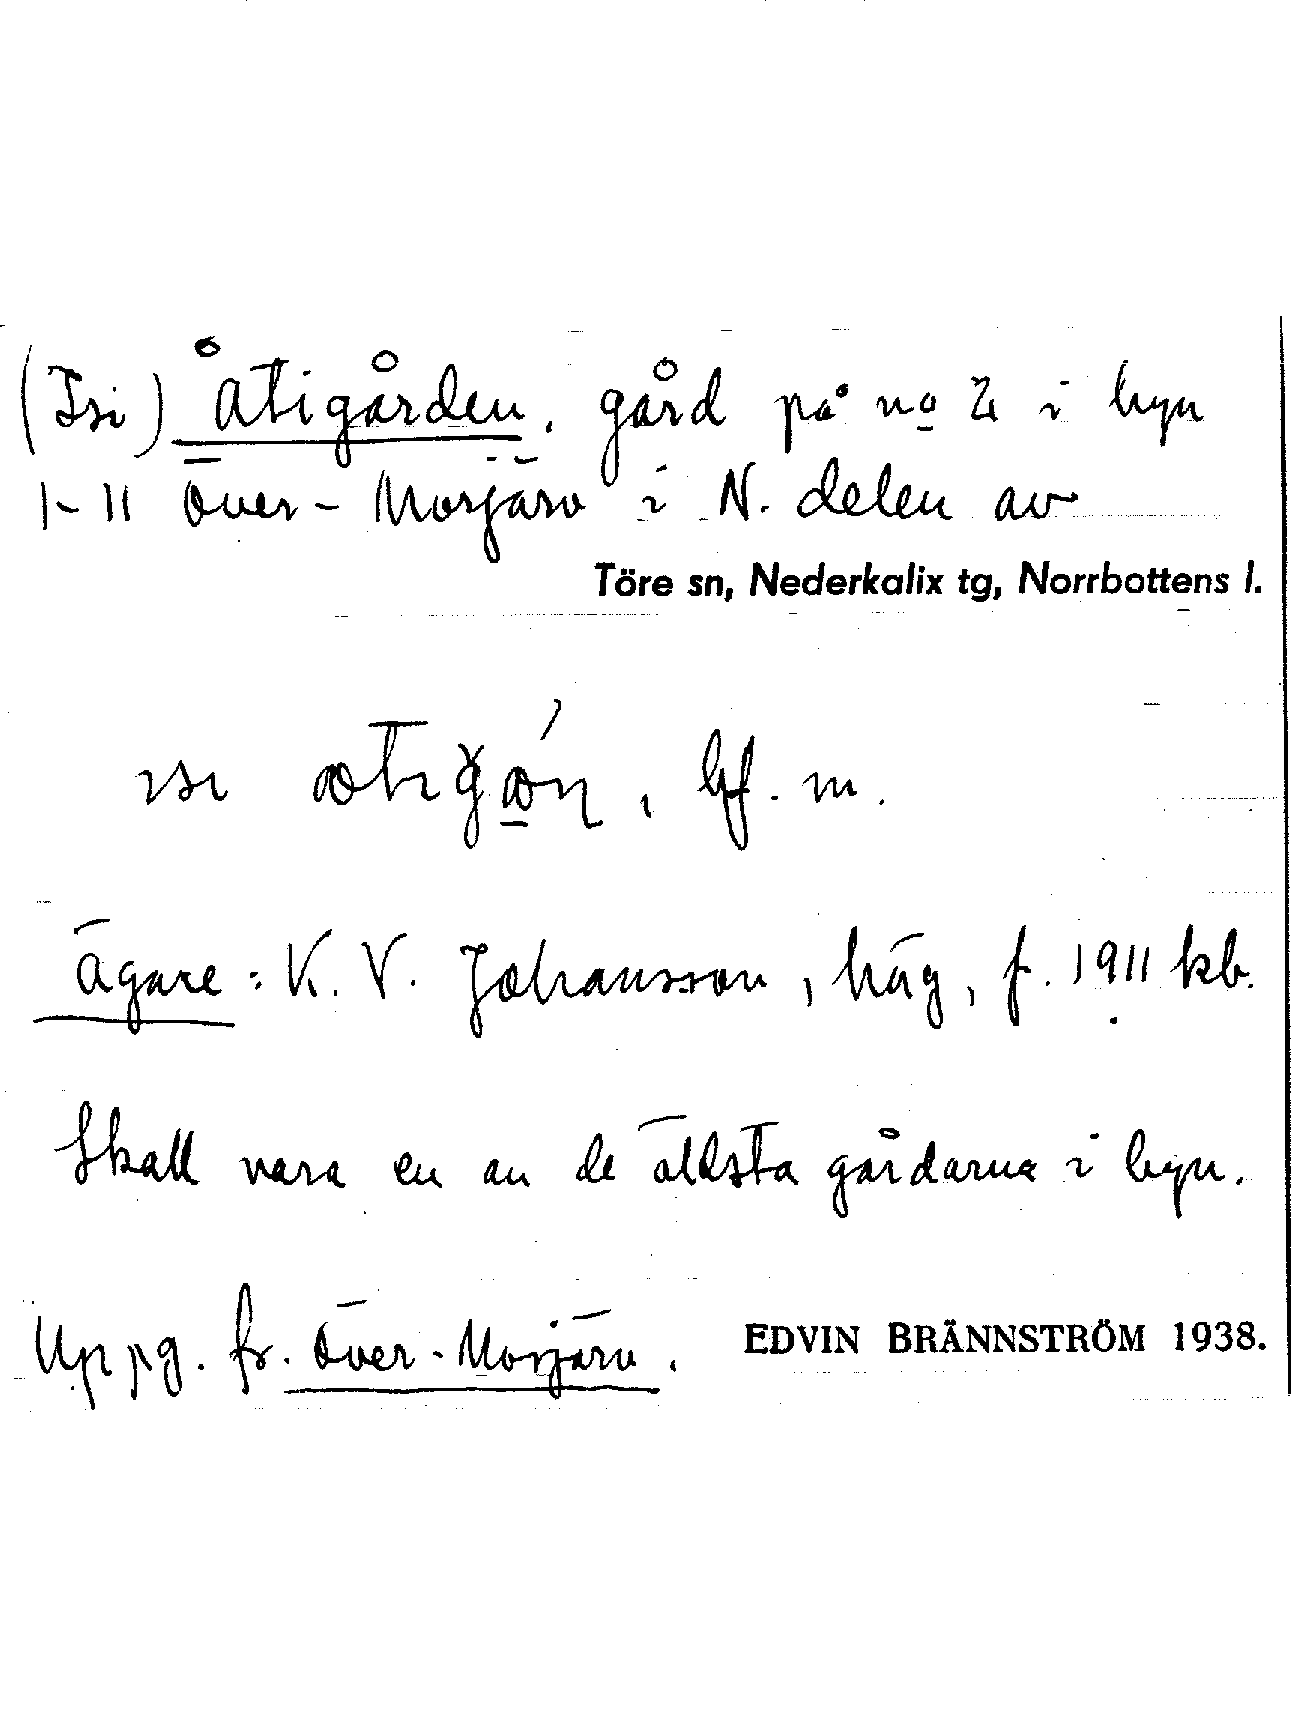 (Isi) Åtigården, gård på no 2 i byn
1-11 Över-Morjärv i N. delen av
Töre sn, Nederkalix tg, Norrbottens l.
bf. m.
Ägare: K. V. Johansson, häg, f. 1911 kb.
Skall vara en av de äldsta gårdarna i byn.
Uppg. fr. Över-Morjärv. EDVIN BRÄNNSTRÖM 1938.